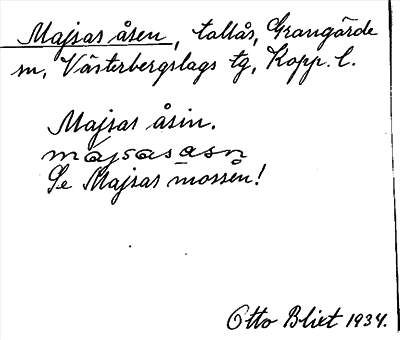 Majsas åsen, tallås, Grangärde
sn, Västerbergslags tg, Kopp. l.
Majsas åsin.
majsasasn
Se Majsas mossen!
Otto Blixt 1934.